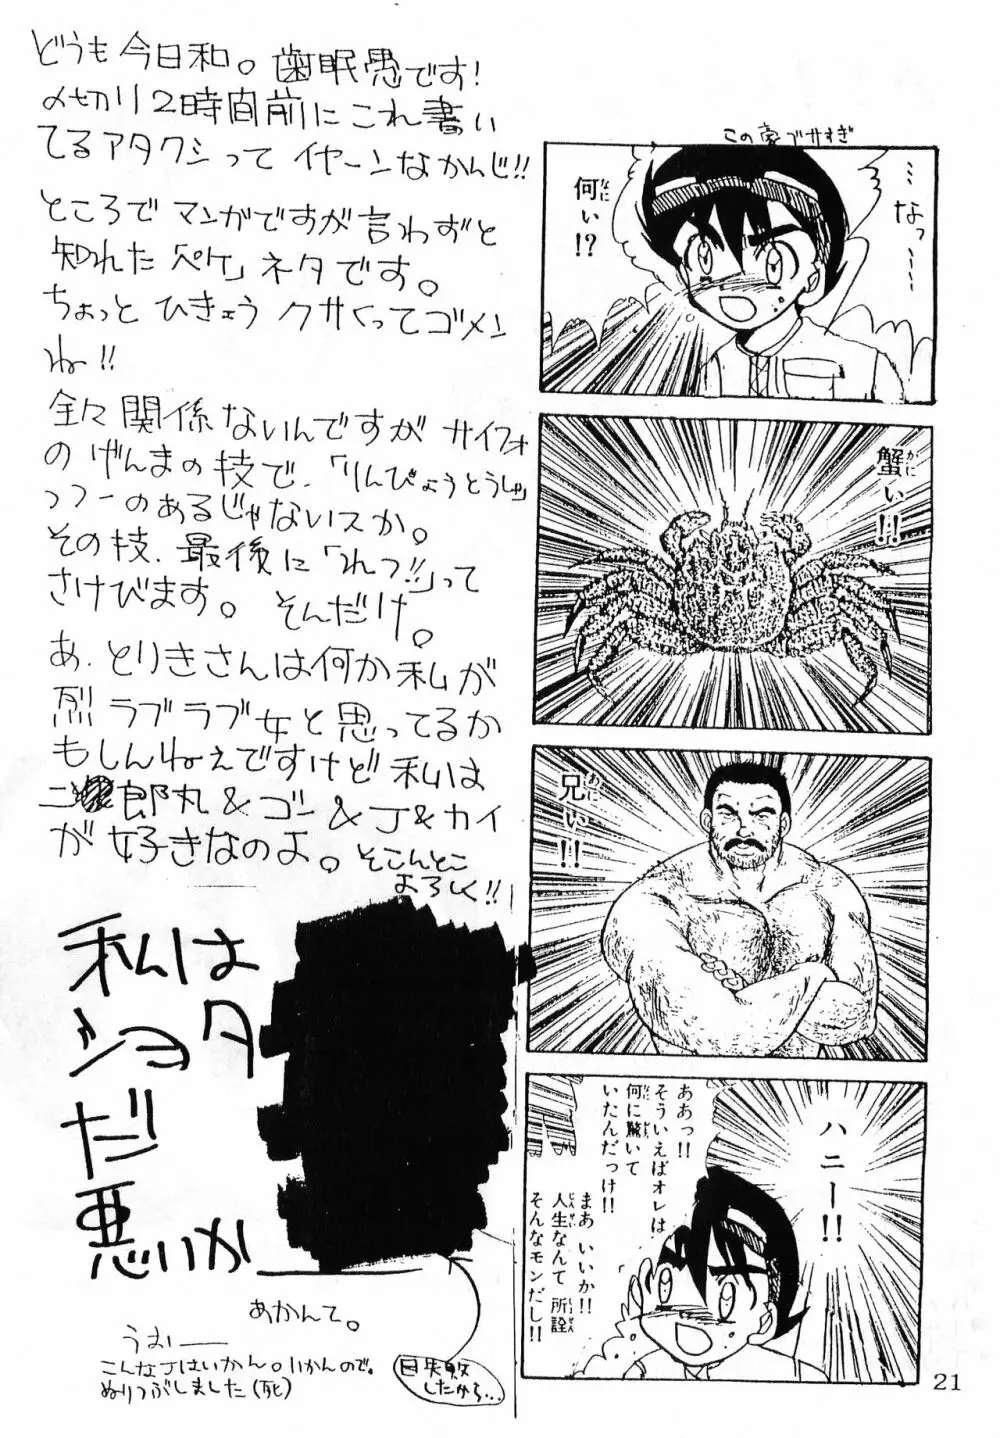 どうも今日和。歯眠愚です!
〆切り2時間前にこれ書い
てるアタクシって イヤーンなかんじ!!
ところでマンガですが言わずと
知れた「ペケ」ネタです。
ちょっと ひきょう クサくってゴメン
ね!!
全々関係ないんですが サイフォ
のげんまの技で、「りんぴょうとうしゃ」
っつーのあるじゃないスか。
その技、最後に「れつ!!」って
さけびます。 そんだけ。
あ、とりきさんは何か私が
烈ラブラブ女と思ってるか
もしんねえですけど 私は
二郎丸&ゴン&J&カイ
が好きなのよ。そこんとこ
よろしく!!
私は
ショタ
だ
悪いか
あかんて。
うおー
こんなJはいかん。いかんので。
ぬりつぶしました(死)
目失敗
したから...
この家デカすぎ
...なっ
何ぃ!?
蟹ぃ!!
兄ぃ!!
ハニー!!
ああっ!!
そういえばオレは
何に驚いて
いたんだっけ!!
まあ いいか!!
人生なんて 所詮
そんなモンだし!!
21